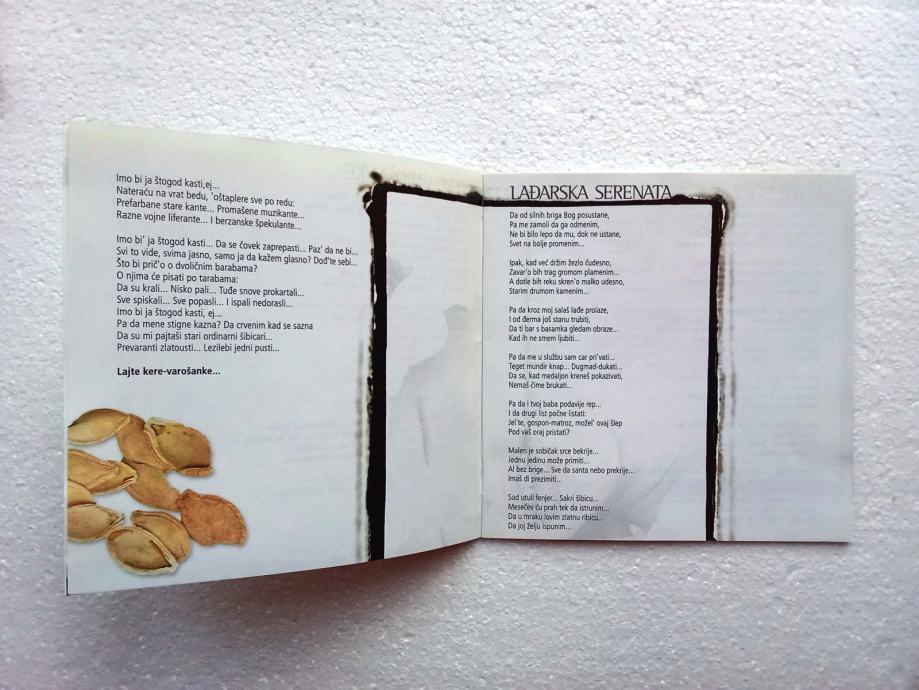 Imo bi ja štogod kasti,ej...
Nateraću na vrat bedu, 'oštaplere sve po redu:
Prefarbane stare kante... Promašene muzikante...
Razne vojne liferante... I berzanske špekulante...
Imo bi' ja štogod kasti... Da se čovek zaprepasti... Paz' da ne bi...
Svi to vide, svima jasno, samo ja da kažem glasno? Dođ'te sebi...
Što bi prič'o o dvoličnim barabama?
O njima će pisati po tarabama:
Da su krali... Nisko pali... Tuđe snove prokartali...
Sve spiskali... Sve popasli... I ispali nedorasli...
Imo bi ja štogod kasti, ej...
Pa da mene stigne kazna? Da crvenim kad se sazna
Da su mi pajtaši stari ordinarni šibicari...
Prevaranti zlatousti... Lezilebi jedni pusti...
Lajte kere-varošanke...
LAĐARSKA SERENATA
Da od silnih briga Bog posustane,
Pa me zamoli da ga odmenim,
Ne bi bilo lepo da mu, dok ne ustane,
Svet na bolje promenim...
Ipak, kad već držim žezlo čudesno,
Zavar'o bih trag gromom plamenim...
A dotle bih reku skren'o malko udesno,
Starim drumom kamenim...
Pa da kroz moj salaš lađe prolaze,
I od đerma još stanu trubiti,
Da ti bar s basamka gledam obraze...
Kad ih ne smem ljubiti...
Pa da me u službu sam car pri'vati...
Teget mundir knap... Dugmad-dukati...
Da se, kad medaljon kreneš pokazivati,
Nemaš čime brukati...
Pa da i tvoj baba podavije rep...
I da drugi list počne listati:
Jel'te, gospon-matroz, možel' ovaj šlep
Pod vaš oraj pristati?
Malen je sobičak srce bekrije...
Jednu jedinu može primiti...
Al bez brige... Sve da santa nebo prekrije...
Imaš di prezimiti...
Sad utuli fenjer... Sakri šibicu...
Mesečev ću prah tek da istrunim...
Da u mraku lovim zlatnu ribicu...
Da joj želju ispunim...